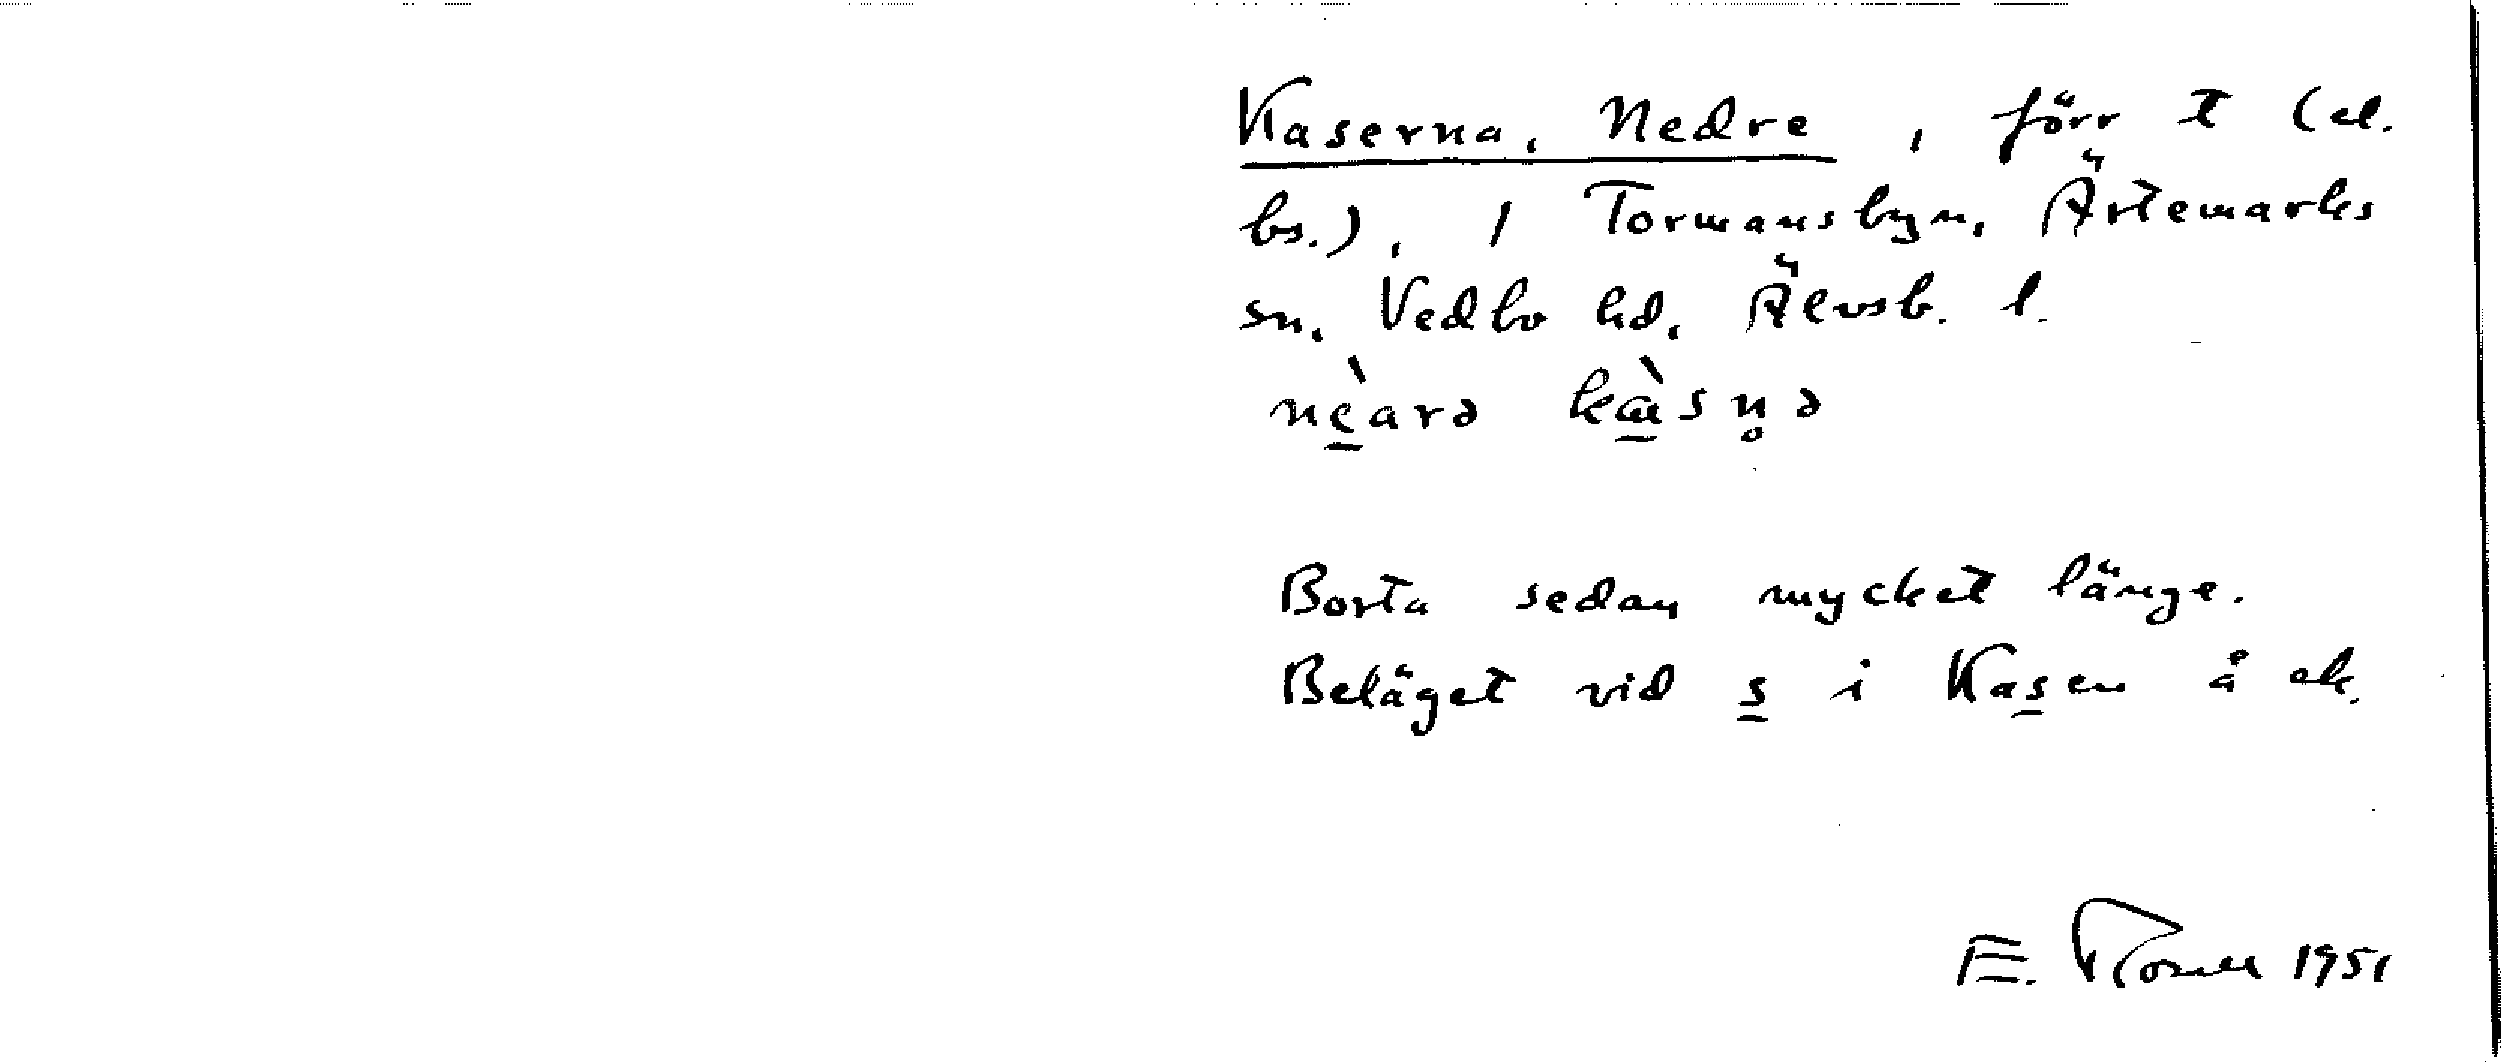 Kaserna, Nedre, förr t (el.
bs.), 1 Tormansbyn, Ärtemarks
sn, Vedbo hd, Älvsb. l.
nèarə kàsn̥ə
Borta sedan mycket länge.
Beläget vid s i Kasen å ek.
E. 1951